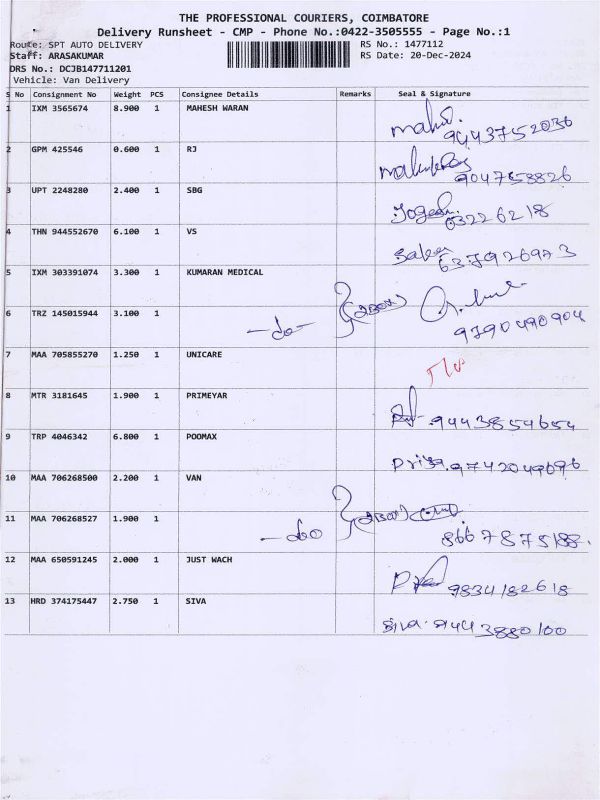 THE PROFESSIONAL COURIERS, COIMBATORE
Delivery Runsheet - CMP - Phone No.:0422-3505555 - Page No.:1
Route: SPT AUTO DELIVERY RS No.: 1477112
Staff: ARASAKUMAR RS Date: 20-Dec-2024
DRS No.: DCJB147711201
Vehicle: Van Delivery
S No Consignment No Weight PCS Consignee Details Remarks Seal & Signature
1 IXM 3565674 8.900 1 MAHESH WARAN
9443752036
2 GPM 425546 0.600 1 RJ
9047558826
3 UPT 2248280 2.400 1 SBG
63226218
4 THN 944552670 6.100 1 VS
637926973
5 IXM 303391074 3.300 1 KUMARAN MEDICAL
6 TRZ 145015944 3.100 1 -do-
9790490904
7 MAA 705855270 1.250 1 UNICARE
8 MTR 3181645 1.900 1 PRIMEYAR
9443854654
9 TRP 4046342 6.800 1 POOMAX
Priya. 9742049696
10 MAA 706268500 2.200 1 VAN
11 MAA 706268527 1.900 1 -do
8667875188.
12 MAA 650591245 2.000 1 JUST WACH
9834182618
13 HRD 374175447 2.750 1 SIVA
siva. 9443880100